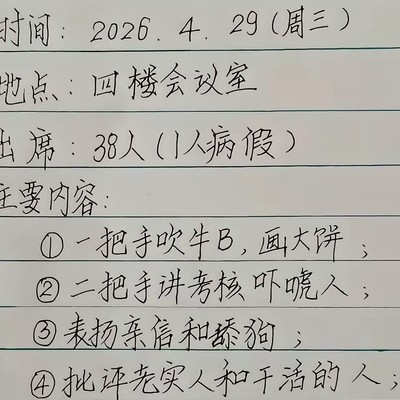 时间：2026.4.29(周三)
地点：四楼会议室
出席：38人(1人病假)
主要内容：
①一把手吹牛B，画大饼；
②二把手讲考核吓唬人；
③表扬亲信和舔狗；
④批评老实人和干活的人；